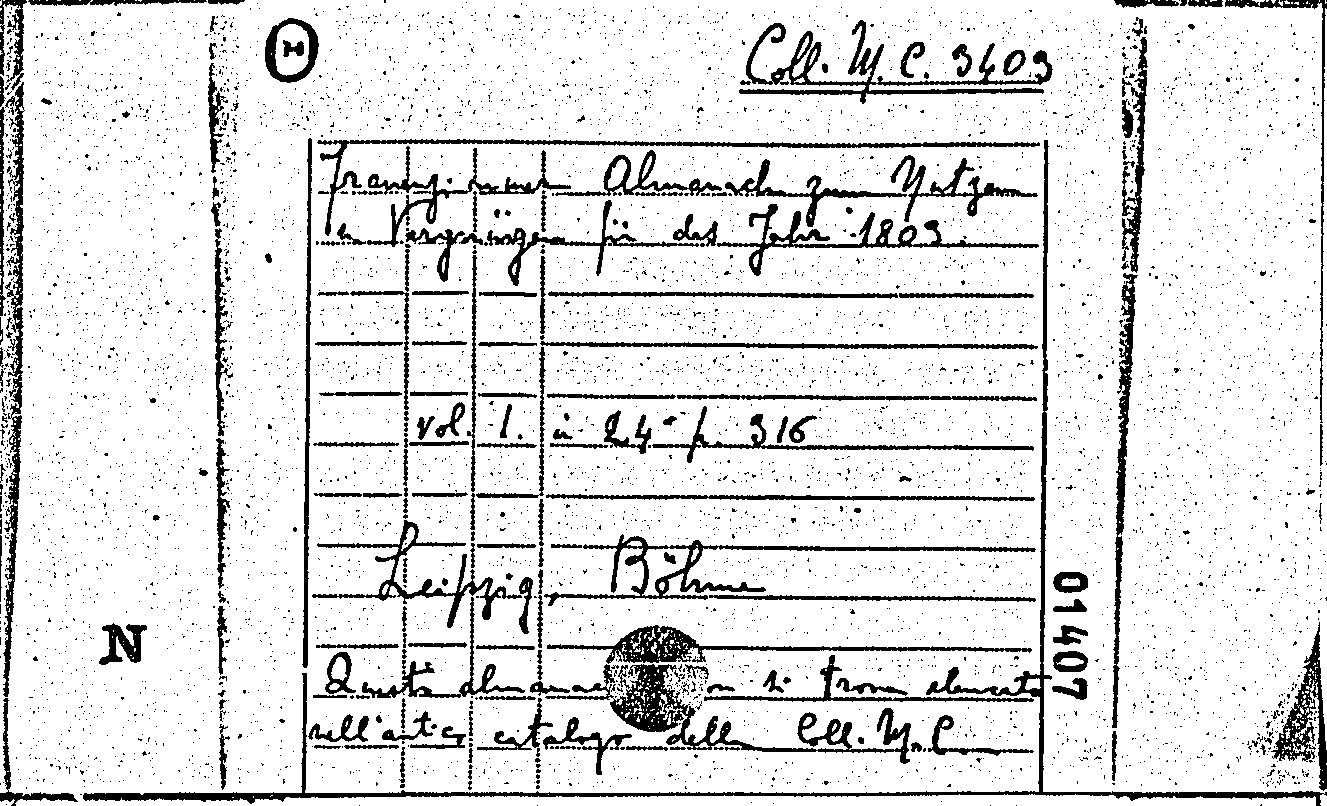 H
Coll. M. C. 3403
Frauenzimmer Almanach zum Nutzen
u. Vergnügen für das Jahr 1803.
vol. 1. in 24° p. 316
Leipzig, Böhme
01407
N
Questo si trova elencato
nell'antico catalogo della Coll. M. C.